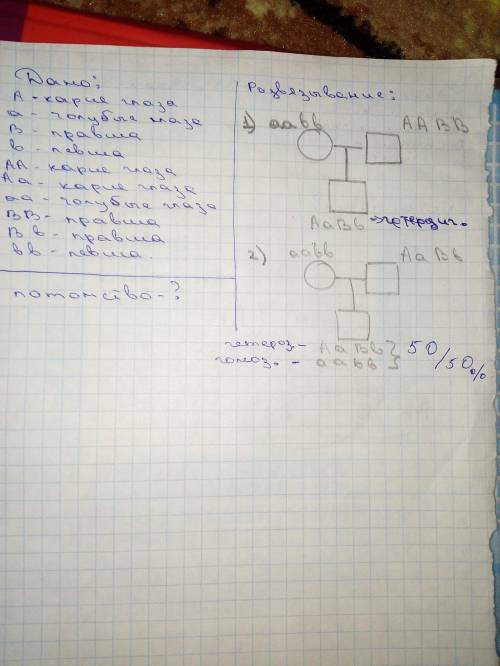 Дано:
А - карие глаза
а - голубые глаза
В - правша
в - левша
АА - карие глаза
Аа - карие глаза
аа - голубые глаза
ВВ - правша
Вв - правша
вв - левша.
потомство - ?
Розвязывание:
1) ааbb ААВВ
АаВb → гетерозиг.
2) ааbb АаВb
гетероз - АаВb } 50/50%
гомоз. - ааbb }